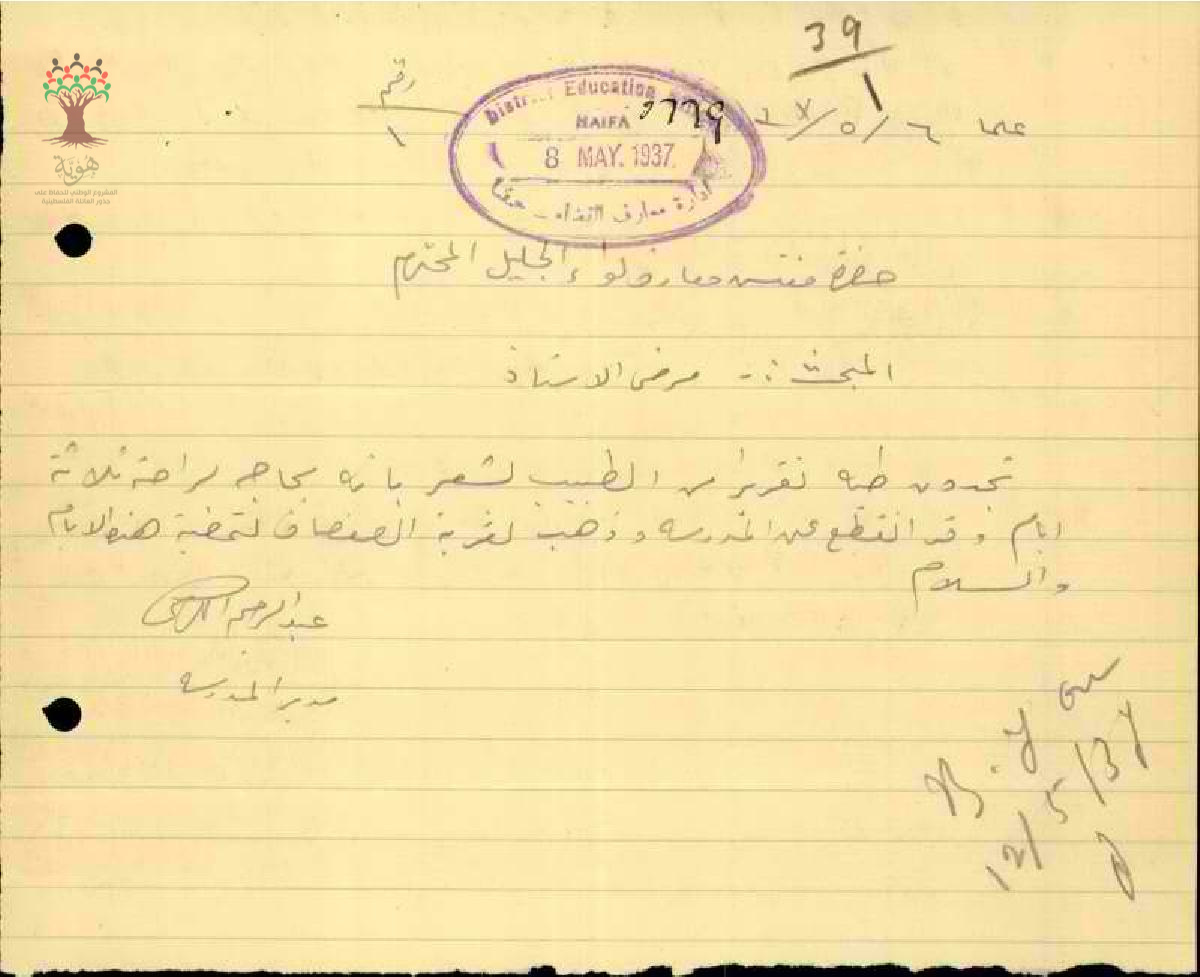 39
1
رقم
١
علما ٦/٥/٣٧
District Education
HAIFA
8 MAY. 1937
ادارة معارف اللواء - حيفا
هوية
المشروع الوطني للحفاظ على
جذور العائلة الفلسطينية
حضرة مفتش معارف لواء الجليل المحترم
المبحث :- مرض الاستاذ
تجدون طيه تقريرا من الطبيب يشعر بانه بحاجه لراحة ثلاثة
ايام وقد انقطع عن المدرسه وذهب لقرية الصفصاف لتمضية هذه الايام
والسلام
عبد الرحيم
مدير المدرسه
12/5/37